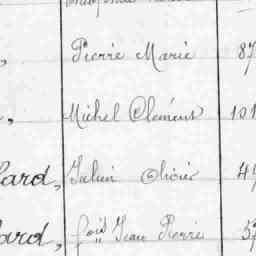 , Pierre Marie 87
, Michel Clement 101
ard, Julien Olivier 44
ard, Jean Pierre 5